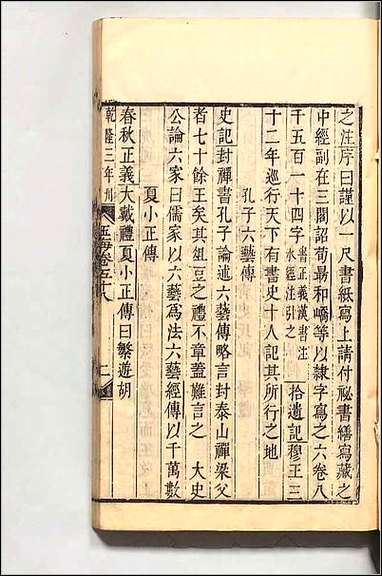 之注序曰謹以一尺書紙寫上請付祕書繕寫藏之
中經副在三閣詔荀勗和嶠等以隸字寫之六卷八
千五百一十四字書正義漢書注水經注引之 拾遺記穆王三
十二年巡行天下有書史十人記其所行之地
孔子六藝傳
史記封禪書孔子論述六藝傳略言封泰山禪梁父
者七十餘王矣其俎豆之禮不章蓋難言之 大史
公論六家曰儒家以六藝為法六藝經傳以千萬數
夏小正傳
春秋正義大戴禮夏小正傳曰蘩遊胡
乾隆三年刊 玉海卷五十八 二